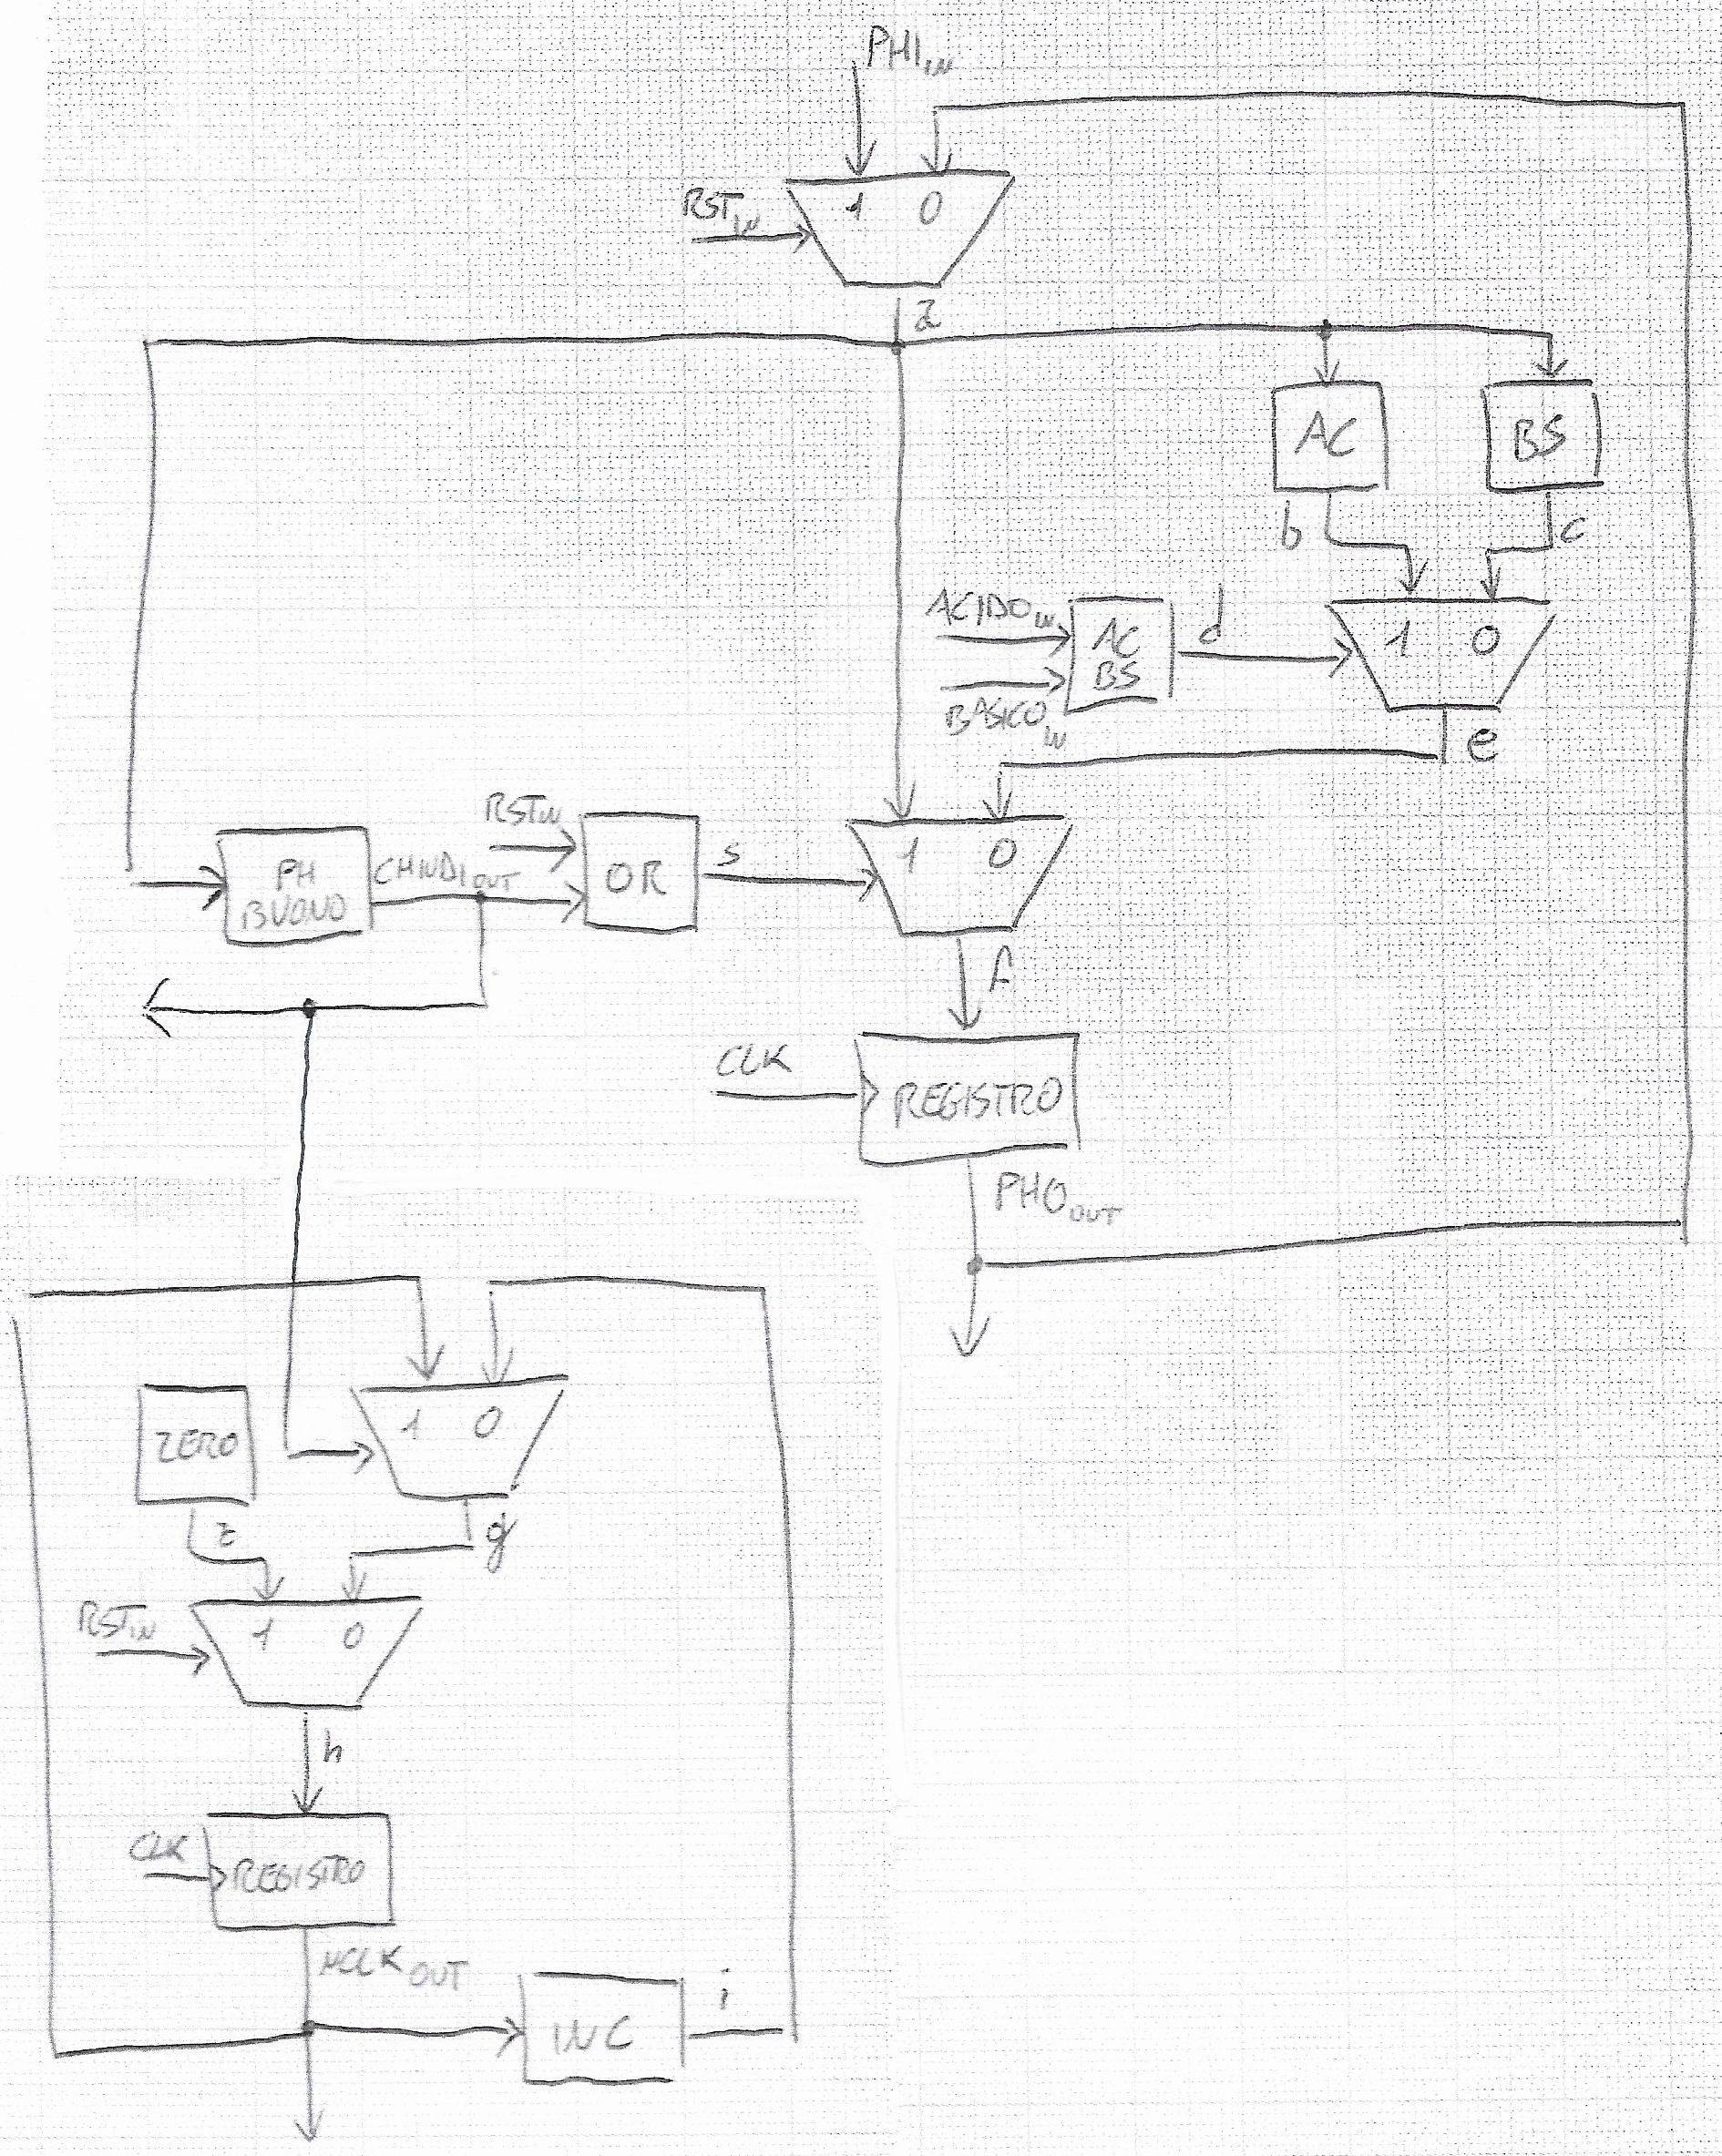 PHI IN
RST IN
1 0
a
AC
BS
b
c
ACIDO IN
AC
BS
d
1 0
BASICO IN
e
RST IN
PH
BUONO
CHIUDI OUT
OR
s
1 0
f
CLK
REGISTRO
PHO OUT
ZERO
1 0
z
g
RST IN
1 0
h
CLK
REGISTRO
NCLK OUT
INC
i